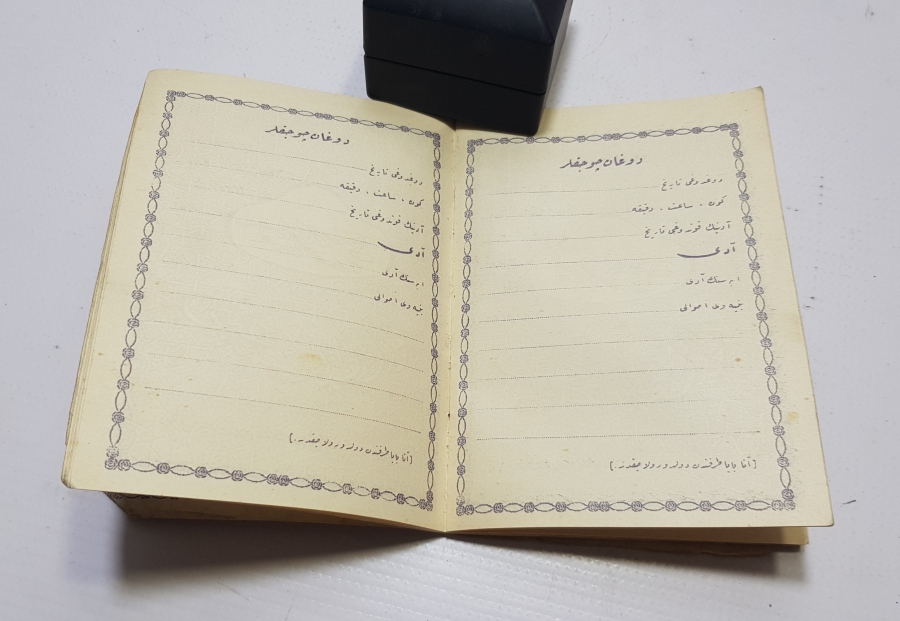 دوغان چوجقلر
دوغدوغی تاریخ
کون ، ساعت ، دقیقه
آدینك قوندوغی تاریخ
آدی
ابه سنك آدی
بنیه وی احوالی
[آنا بابا طرفندن دولدورولاجقدر.]
دوغان چوجقلر
دوغدوغی تاریخ
کون ، ساعت ، دقیقه
آدینك قوندوغی تاریخ
آدی
ابه سنك آدی
بنیه وی احوالی
[آنا بابا طرفندن دولدورولاجقدر.]